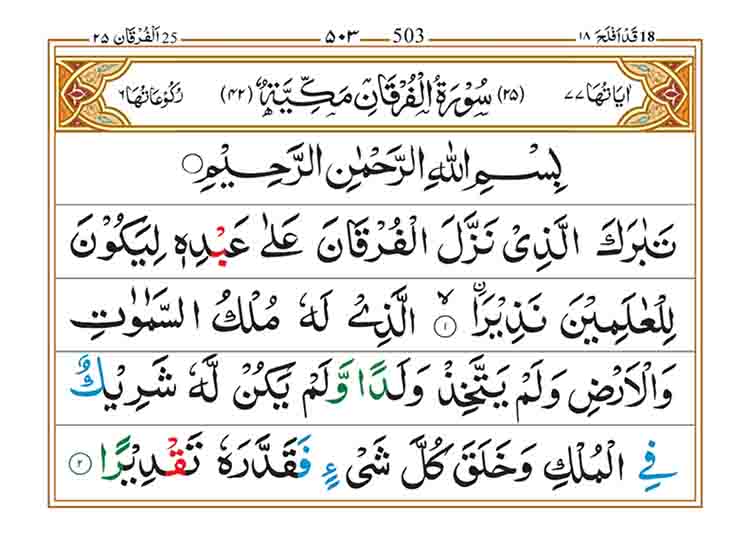 18 قَدْ اَفْلَحَ ١٨ 503 ٥٠٣ 25 اَلْفُرْقَان ٢٥
اٰیَاتُهَا ٧٧ (٢٥) سُوْرَةُ الْفُرْقَانِ مَكِّيَّةٌ (٤٢) رُكُوْعَاتُهَا ٦
بِسْمِ اللهِ الرَّحْمٰنِ الرَّحِيْمِ ○
تَبٰرَكَ الَّذِیْ نَزَّلَ الْفُرْقَانَ عَلٰى عَبْدِهٖ لِيَكُوْنَ
لِلْعٰلَمِيْنَ نَذِيْرَاۙ ۝١ اۨلَّذِیْ لَهٗ مُلْكُ السَّمٰوٰتِ
وَالْاَرْضِ وَلَمْ يَتَّخِذْ وَلَدًا وَّلَمْ يَكُنْ لَّهٗ شَرِيْكٌ
فِی الْمُلْكِ وَخَلَقَ كُلَّ شَیْءٍ فَقَدَّرَهٗ تَقْدِيْرًا ۝٢